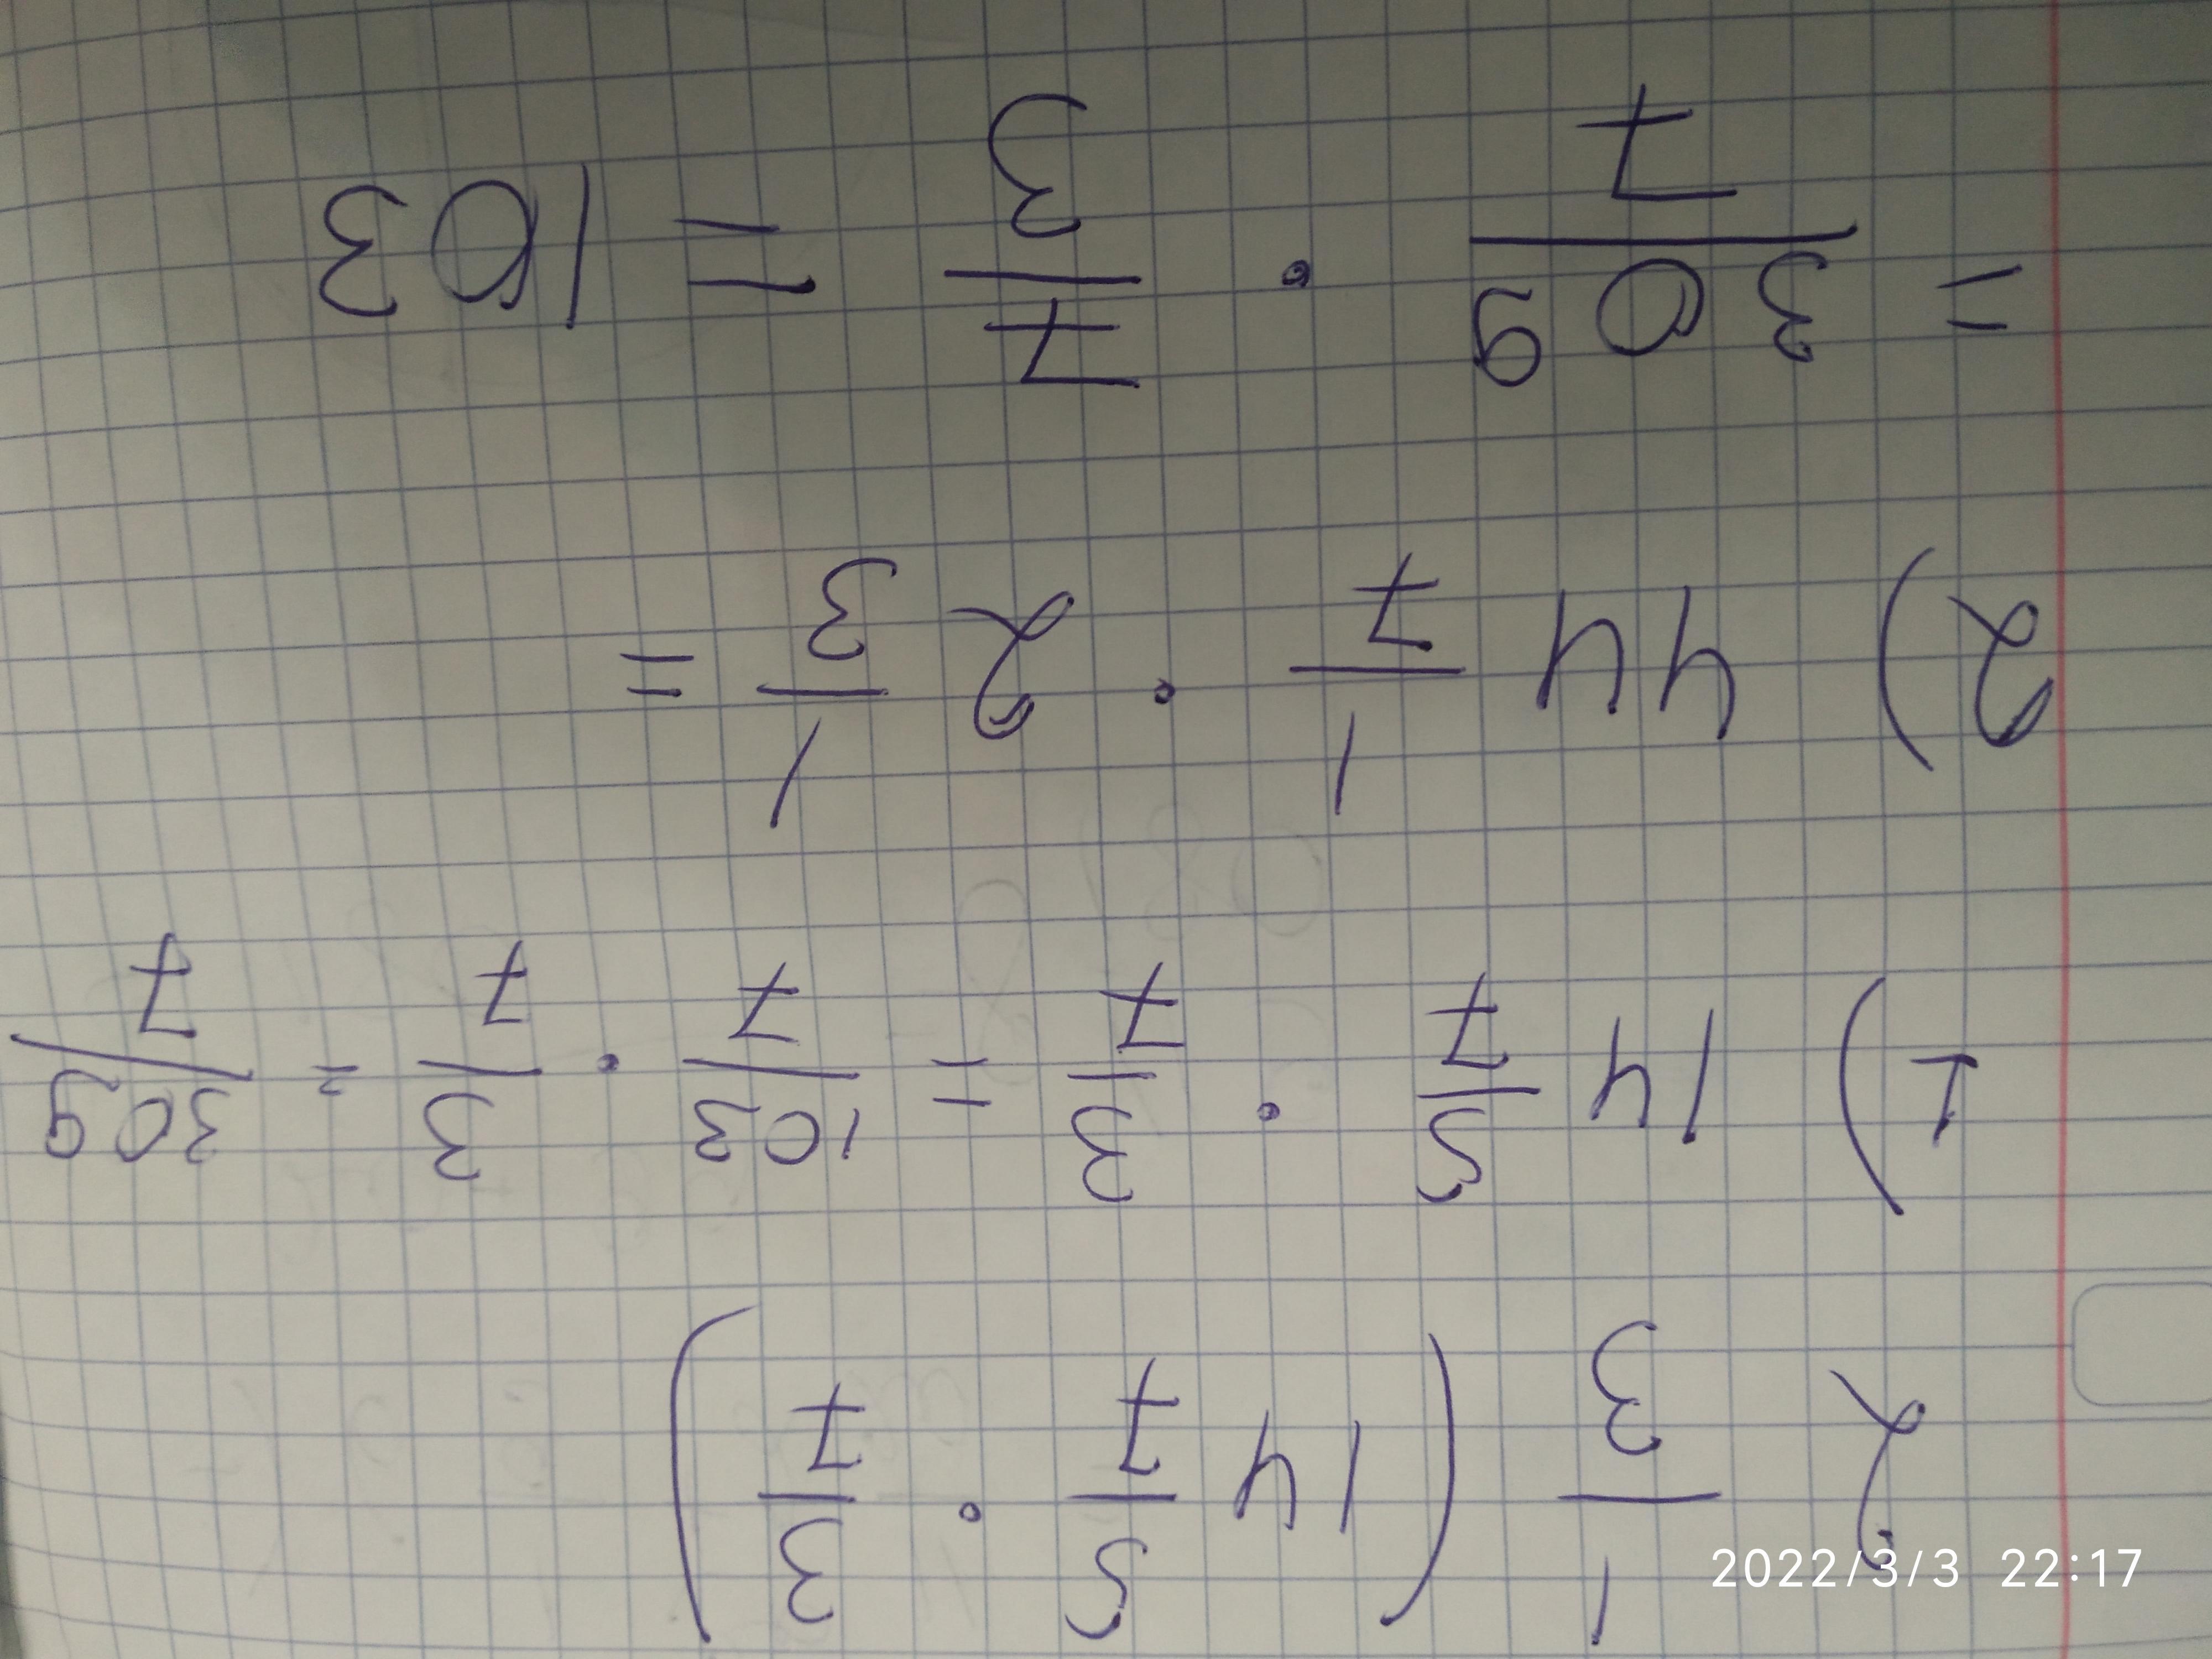 2 1/3 (14 5/7 · 3/7)
1) 14 5/7 · 3/7 = 103/7 · 3/7 = 309/7
2) 44 1/7 · 2 1/3 =
= 309/7 · 7/3 = 103
2022/3/3 22:17